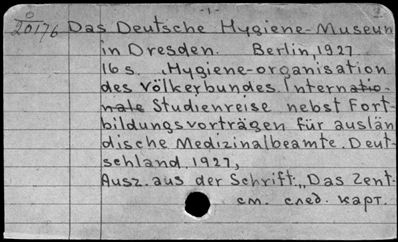 -1-
0
20176 Das Deutsche Hygiene-Museum
in Dresden. Berlin, 1927
16 s. „Hygiene-organisation
des Völkerbundes. Internatio-
nale Studienreise nebst Fort-
bildungsvorträgen für auslän
dische Medizinalbeamte. Deut-
schland. 1927,
Ausz. aus der Schrift: „Das Zent-
см. след. карт.